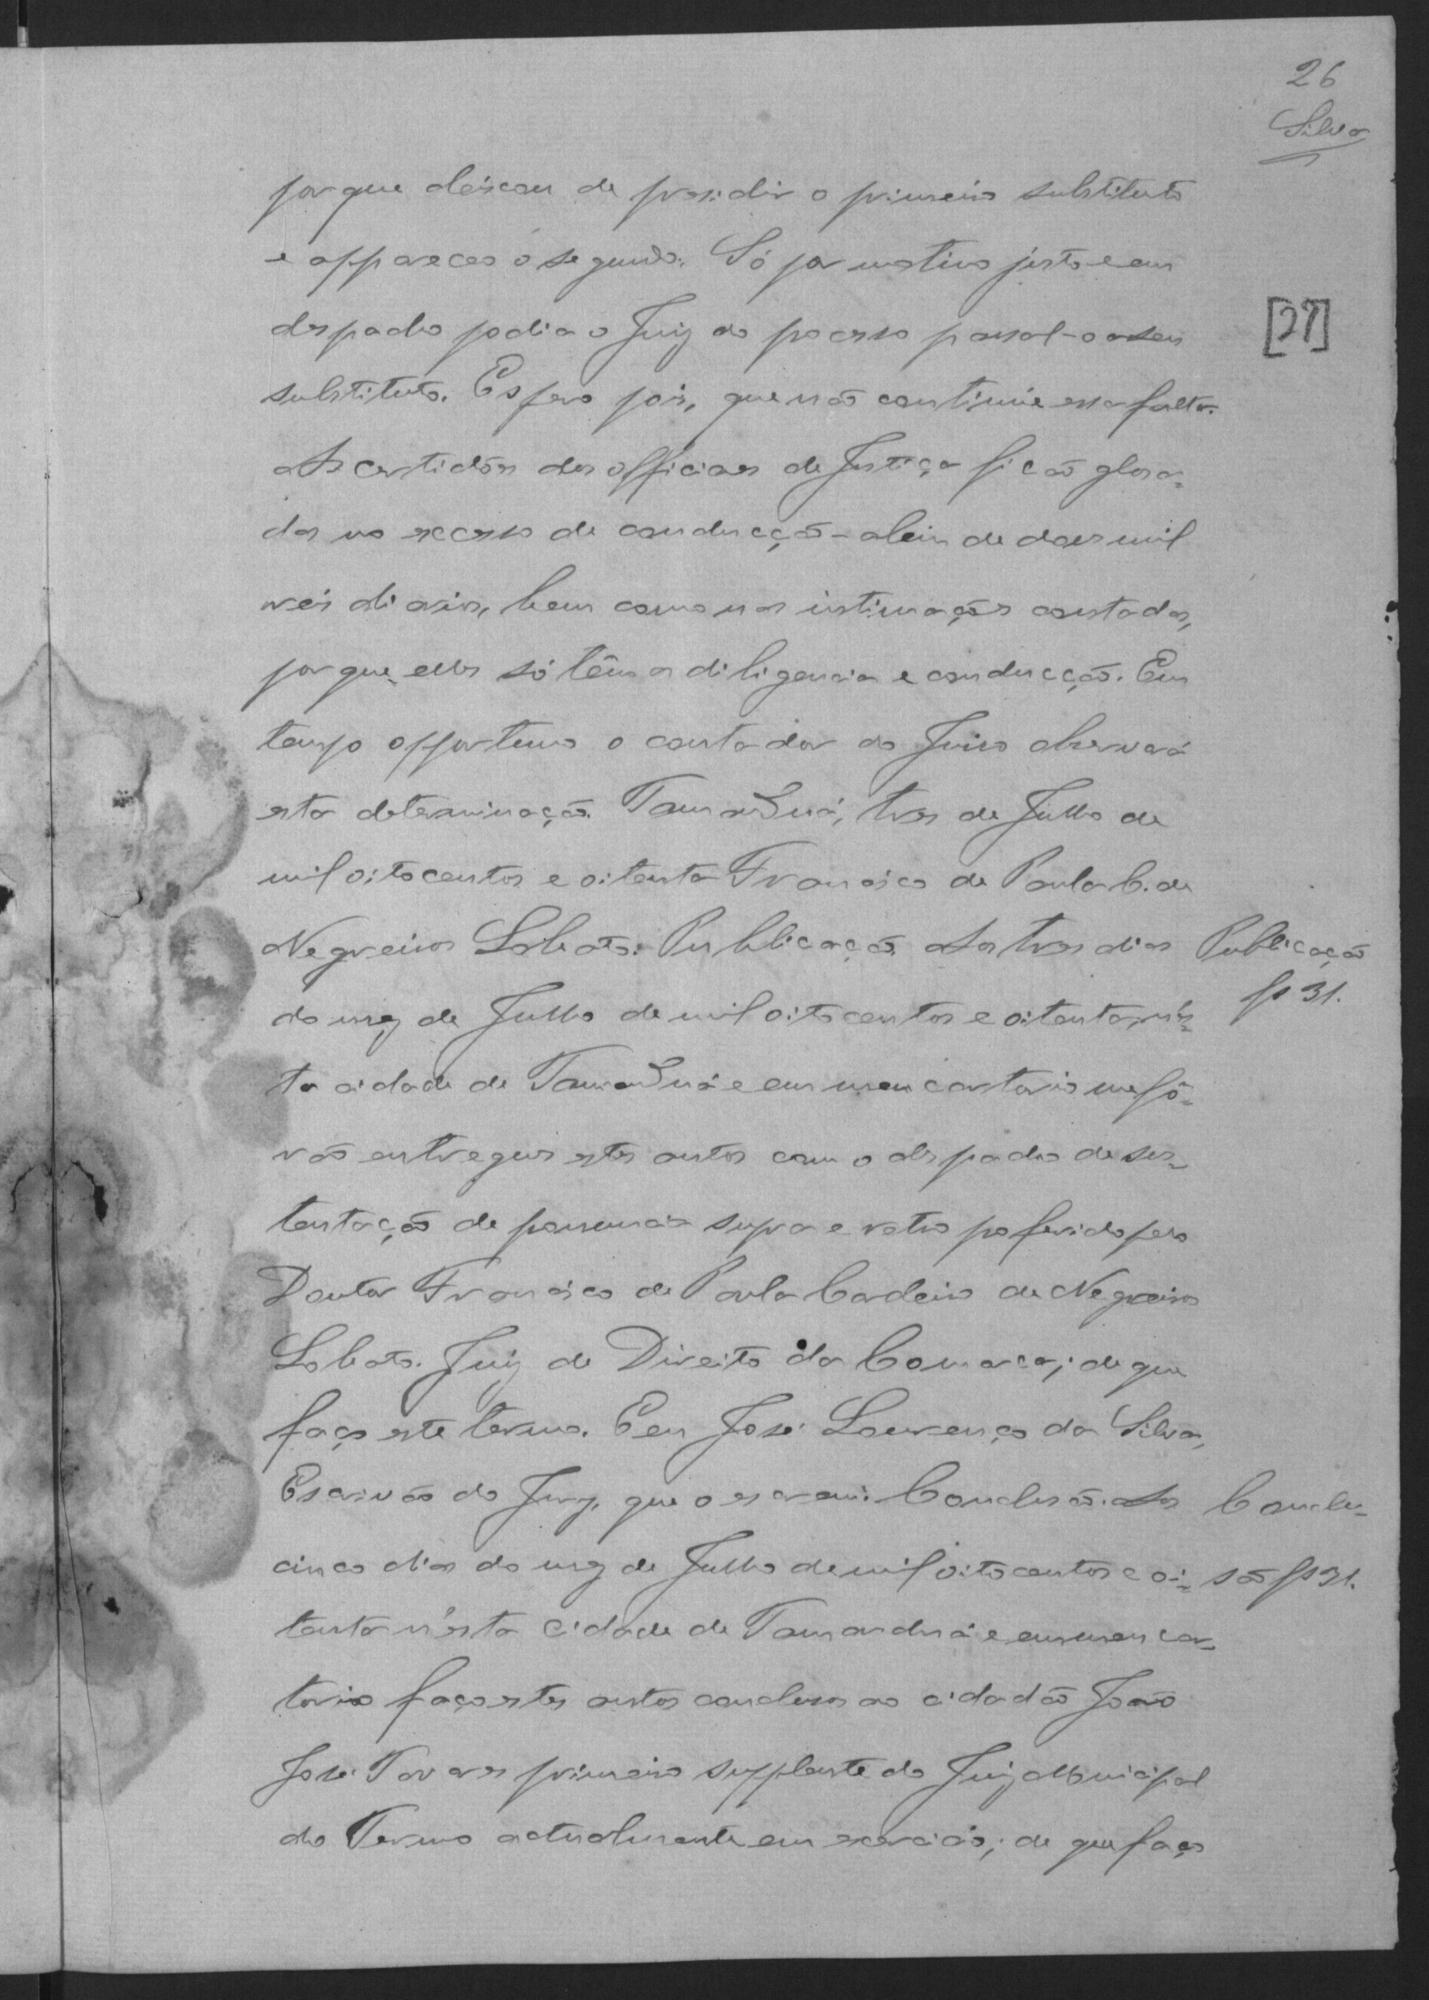 26
Silva
porque deixou de presidir o primeiro substituto
e appareceo o segundo. Só por motivo justo e em
despacho podia o Juiz do pocesso passal-o a seu
substituto. Espero pois, que não continúe essa falta.
As certidões dos officiaes de Justiça ficão glosa-
[27]
das no excesso de conducção - alem de dous mil
reis diarios, bem como nas intimações contadas,
porque elles só têm a diligencia e conducção. Em
tempo opportuno o contador do Juiso observará
esta determinação. Tamanduá, tres de Julho de
mil oitocentos e oitenta Francisco de Paula C. de
Negreiros Lobato. Publicação. Aos tres dias
Publicação
fs 31.
do mez de Julho de mil oitocentos e oitenta, n'es-
ta cidade de Tamanduá e em meu cartorio me fô-
rão entregues estes autos com o despacho de sus-
tentação de pronuncia supra e retro proferido pelo
Doutor Francisco de Paula Cordeiro de Negreiros
Lobato. Juiz de Direito da Comarca; de que
faço este termo. Eeu José Lourenço da Silva,
Escrivão do Jury, que o escrevi. Conclusão. Aos
Conclu-
cinco dias do mez de Julho de mil oitocentos e oi-
são fs 31.
tenta n'esta Cidade de Tamanduá e em meu car-
torio faço estes autos conclusos ao cidadão João
José Tavares primeiro supplente do Juiz Municipal
do Termo actualmente em exercicio; de que faço